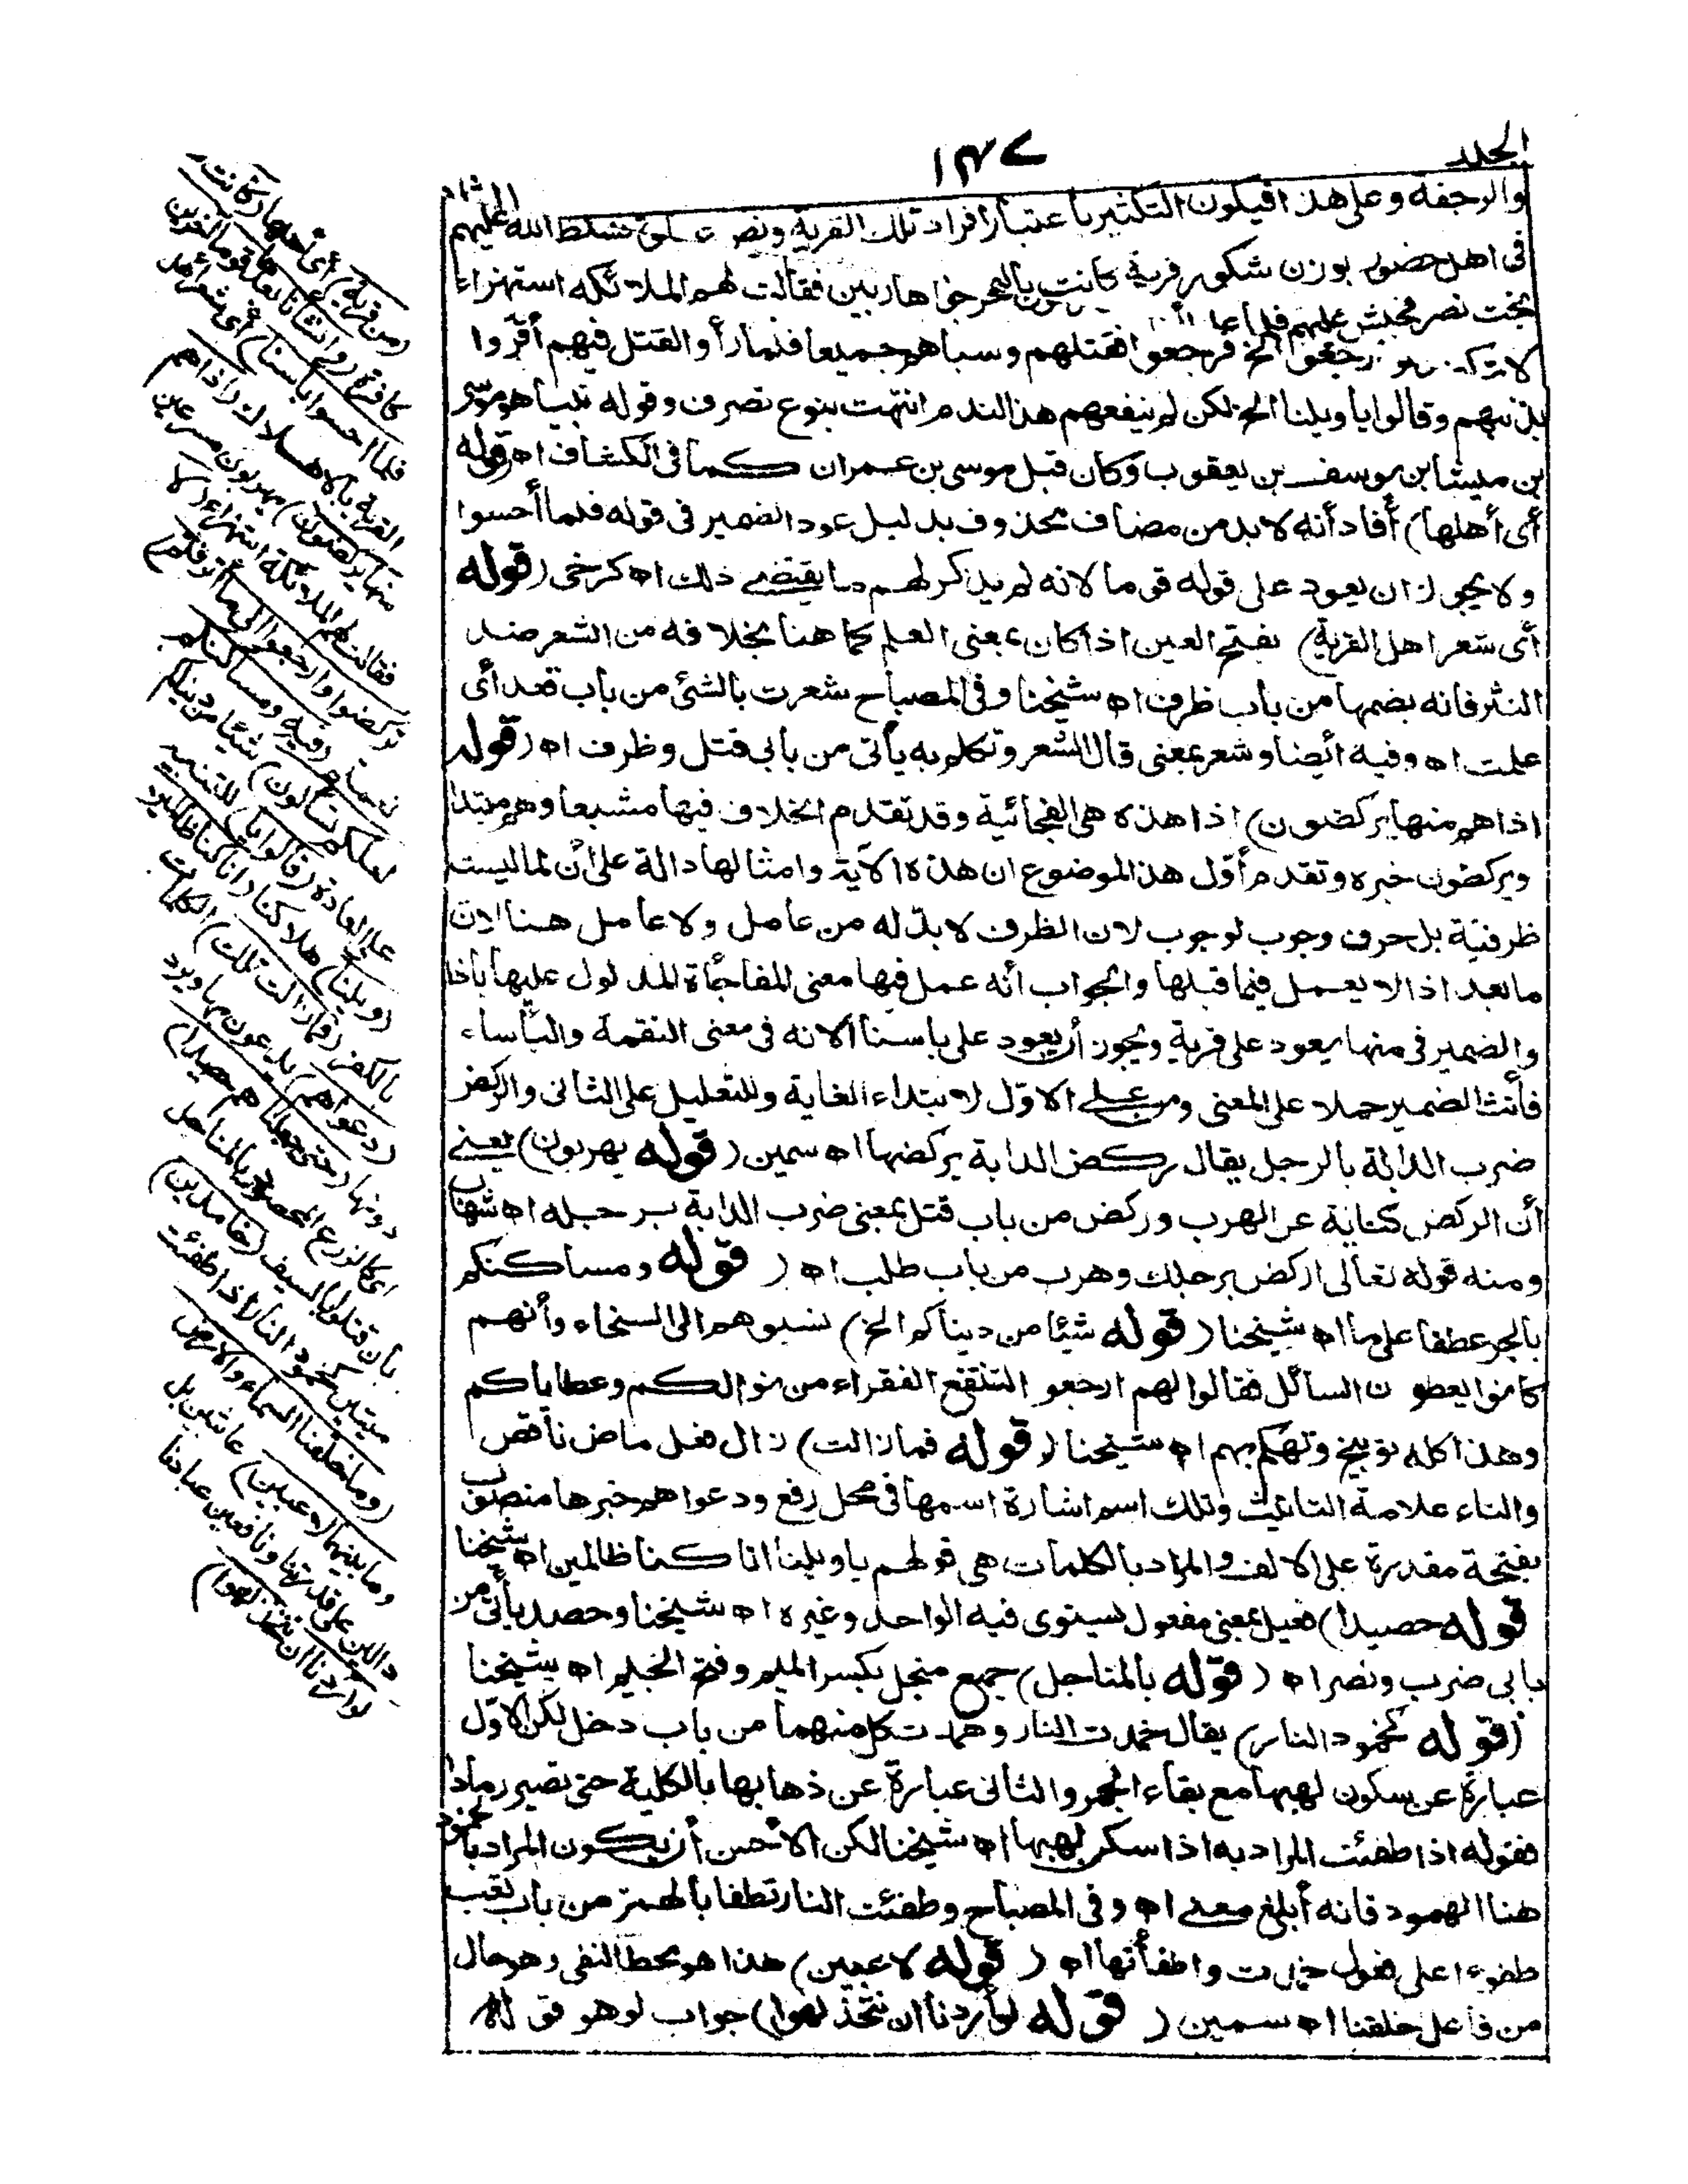 الجلد
١٣٧
الثالث
والرجفة وعلى هذا فيكون التكثير باعتبار افراد تلك القرية ونصر فسلط الله عليهم
فى اهل حضور بوزن شكور قرية كانت باليمن هاربين فقالت لهم الملائكة استهزاء
بخت نصر فجيش عليهم فلما
لا تركضوا وارجعوا الخ فرجعوا فقتلهم وسباهم جميعا فلما رأوا القتل فيهم أقروا
بذنبهم وقالوا يا ويلنا الخ لكن لم ينفعهم هذا الندم انتهت بنوع تصرف وقوله نبيا هو موسى
بن ميشا بن يوسف بن يعقوب وكان قبل موسى بن عمران كما فى الكشاف اه (قوله
أى أهلها) أفاد أنه لا بد من مضاف محذوف بدليل عود الضمير فى قوله فلما أحسوا
ولا يجوز ان يعود على قوله قوما لانه لم يذكر لهم ما يقتضى ذلك اه كرخى (قوله
أى شعر اهل القرية) بفتح العين اذا كان بمعنى العلم كما هنا بخلافه من الشعر ضد
النثر فانه بضمها من باب ظرف اه شيخنا وفى المصباح شعرت بالشئ من باب قعد أى
علمت اه وفيه أيضا وشعر بمعنى قال الشعر وتكلم به يأتى من بابى قتل وظرف اه (قوله
اذا هم منها يركضون) اذا هذه هى الفجائية وقد تقدم الخلاف فيها مشبعا وهم مبتدا
ويركضون خبره وتقدم أول هذا الموضوع ان هذه الآية وامثالها دالة على أن لما ليست
ظرفية بل حرف وجوب لوجوب لان الظرف لا بد له من عامل ولا عامل هنا لان
ما بعد اذا لا يعمل فيما قبلها والجواب أنه عمل فيها معنى المفاجأة المدلول عليها باذا
والضمير فى منها يعود على قرية ويجوز أن يعود على باسنا لانه فى معنى النقمة والبأساء
فأنث الضمير حملا على المعنى ومن على الاول لابتداء الغاية وللتعليل على الثانى والركض
ضرب الدابة بالرجل يقال ركض الدابة يركضها اه سمين (قوله يهربون) يعنى
أن الركض كناية عن الهرب وركض من باب قتل بمعنى ضرب الدابة برجله اه شهاب
ومنه قوله تعالى اركض برجلك وهرب من باب طلب اه (قوله ومساكنكم
بالجر عطفا على ما اه شيخنا (قوله شيئا من دنياكم الخ) نسبوهم الى السخاء وأنهم
كانوا يعطون السائل فقالوا لهم ارجعوا لتنقع الفقراء من نوالكم وعطاياكم
وهذا كله توبيخ وتهكم بهم اه شيخنا (قوله فما زالت) زال فعل ماض ناقص
والتاء علامة التانيث وتلك اسم اشارة اسمها فى محل رفع ودعواهم خبرها منصوب
بفتحة مقدرة على الالف والمراد بالكلمات هى قولهم يا ويلنا انا كنا ظالمين اه شيخنا
قوله حصيدا) فعيل بمعنى مفعول يستوى فيه الواحد وغيره اه شيخنا وحصد يأتى من
بابى ضرب ونصر اه (قوله بالمناجل) جمع منجل بكسر الميم وفتح الجيم اه شيخنا
(قوله كخمود النار) يقال خمدت النار وهمدت كل منهما من باب دخل لكن الاول
عبارة عن سكون لهبها مع بقاء الجمر والثانى عبارة عن ذهابها بالكلية حتى تصير رمادا
فقوله اذا طفئت المراد به اذا سكن لهبها اه شيخنا لكن الأحسن أن يكون المراد بالخمود
هنا الهمود فانه أبلغ معنى اه وفى المصباح وطفئت النار تطفا بالهمز من باب تعب
طفوءا على فعول خمدت واطفأتها اه (قوله لاعبين) هذا هو محط النفى وهو حال
من فاعل خلقنا اه سمين (قوله لو أردنا ان نتخذ لهوا) جواب لو هو قوله
ومن قرية) أى أهلها (كانت
كافرة (وانشانا بعدها قوما آخرين
فلما احسوا باسنا) أى شعر أهل
القرية بالاهلاك (اذا هم
منها يركضون) يهربون مسرعين
فقالت لهم الملائكة استهزاء (لا
تركضوا وارجعوا الى ما أترفتم)
نعمتم (فيه ومساكنكم
لعلكم تسألون) شيئا من دنياكم
على العادة (قالوا يا) للتنبيه
(ويلنا) هلاكنا (انا كنا ظالمين)
بالكفر (فما زالت تلك) الكلمات
(دعواهم) يدعون بها ويرد
دونها (حتى جعلناهم حصيدا)
أى كالزرع المحصود بالمناجل
بأن قتلوا بالسيف (خامدين)
ميتين كخمود النار اذا طفئت
(وما خلقنا السماء والارض
وما بينهما لاعبين) عابثين بل
دالين على قدرتنا ونافعين عبادنا
لو أردنا ان نتخذ لهوا)